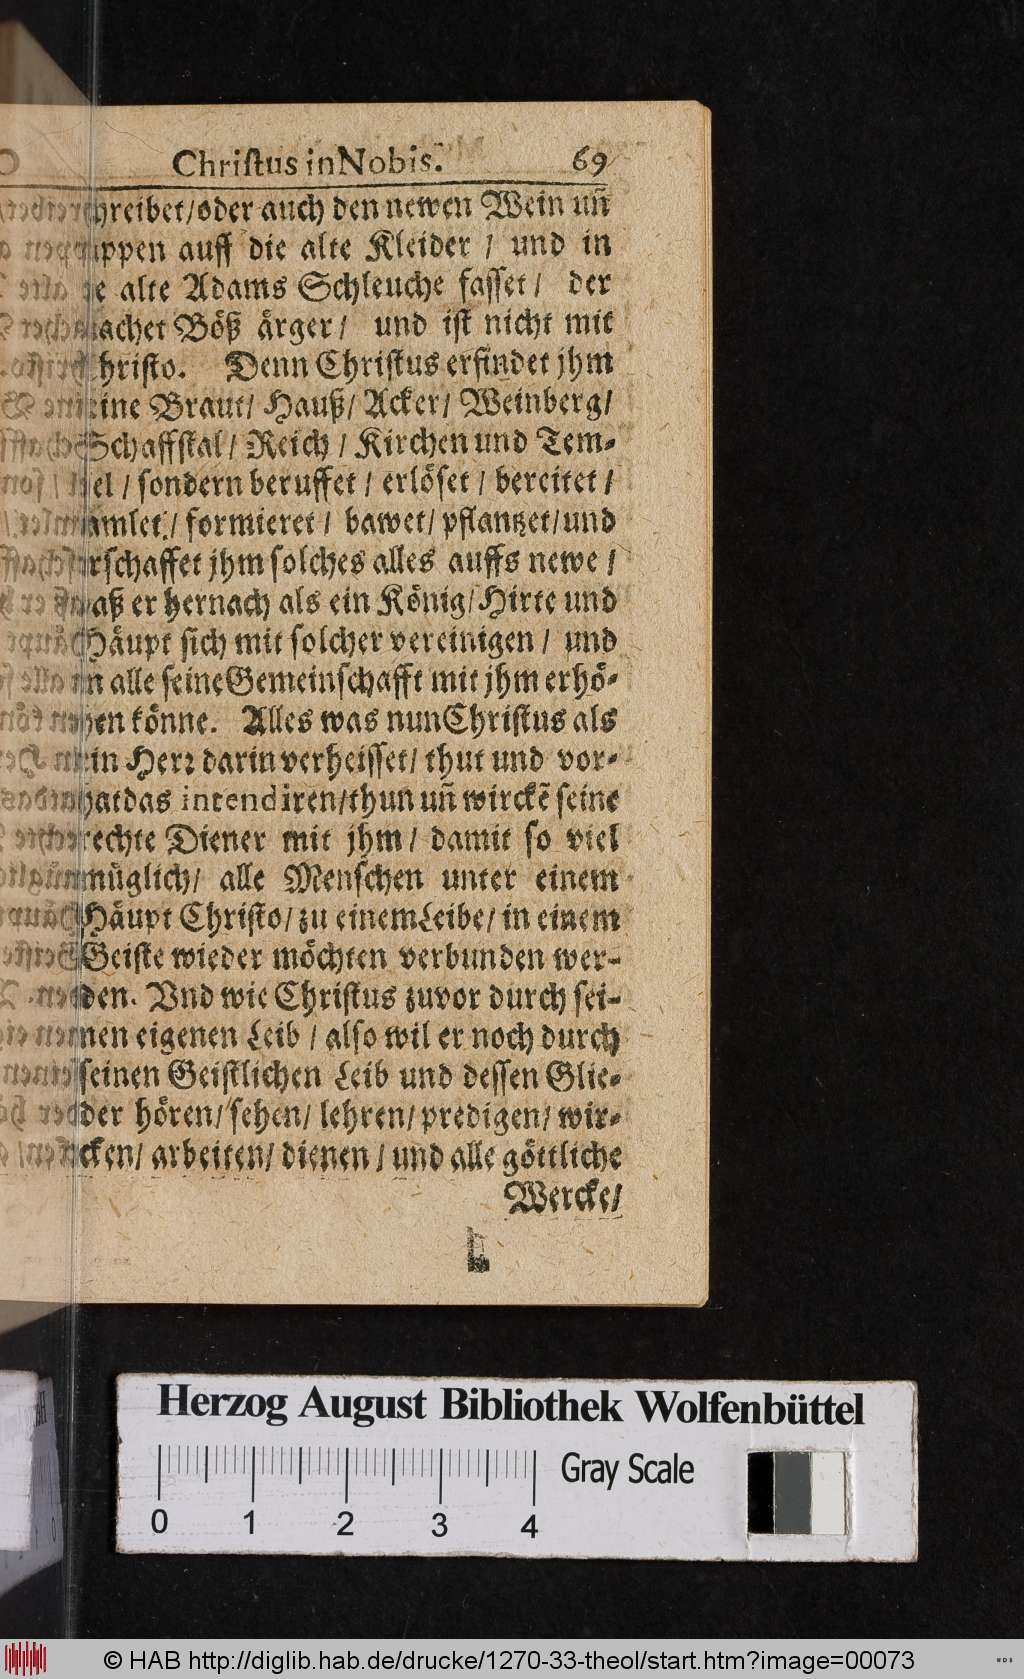 Christus in Nobis. 69
schreibet/oder auch den newen Wein uñ
Lappen auff die alte Kleider / und in
die alte Adams Schleuche fasset / der
machet Böß ärger / und ist nicht mit
Christo. Denn Christus erfindet jhm
eine Braut / Hauß / Acker / Weinberg /
Schaffstal / Reich / Kirchen und Tem-
pel / sondern beruffet / erlöset / bereitet /
samlet / formieret / bawet / pflantzet / und
erschaffet jhm solches alles auffs newe /
daß er hernach als ein König / Hirte und
Häupt sich mit solcher vereinigen / und
in alle seine Gemeinschafft mit jhm erhö-
hen könne. Alles was nun Christus als
ein Herr darin verheisset / thut und vor-
hat das intendiren / thun uñ wirckẽ seine
rechte Diener mit jhm / damit so viel
müglich / alle Menschen unter einem
Häupt Christo / zu einem Leibe / in einem
Geiste wieder möchten verbunden wer-
den. Vnd wie Christus zuvor durch sei-
nen eigenen Leib / also wil er noch durch
seinen Geistlichen Leib und dessen Glie-
der hören / sehen / lehren / predigen / wir-
cken / arbeiten / dienen / und alle göttliche
Wercke /
Herzog August Bibliothek Wolfenbüttel
Gray Scale
0 1 2 3 4
© HAB http://diglib.hab.de/drucke/1270-33-theol/start.htm?image=00073